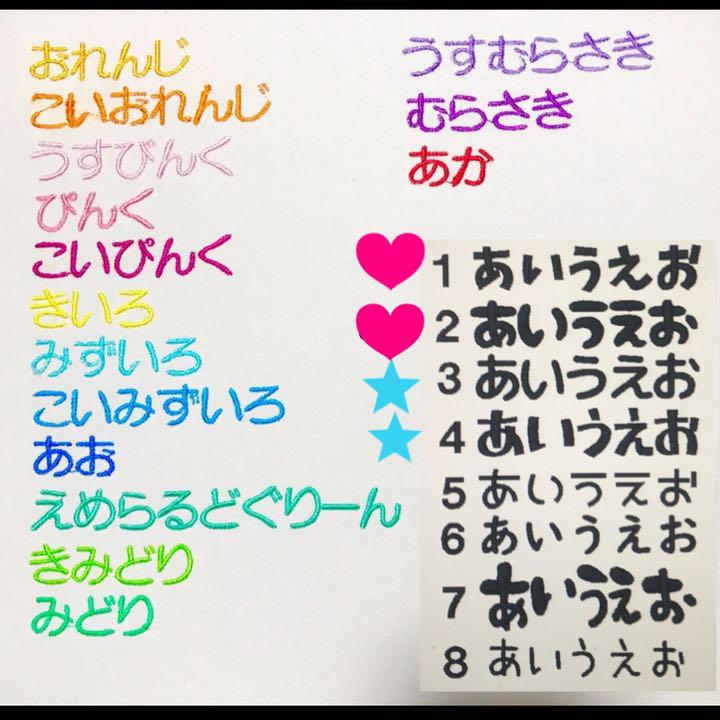 おれんじ
こいおれんじ
うすぴんく
ぴんく
こいぴんく
きいろ
みずいろ
こいみずいろ
あお
えめらるどぐりーん
きみどり
みどり
うすむらさき
むらさき
あか
1 あいうえお
2 あいうえお
3 あいうえお
4 あいうえお
5 あいうえお
6 あいうえお
7 あいうえお
8 あいうえお